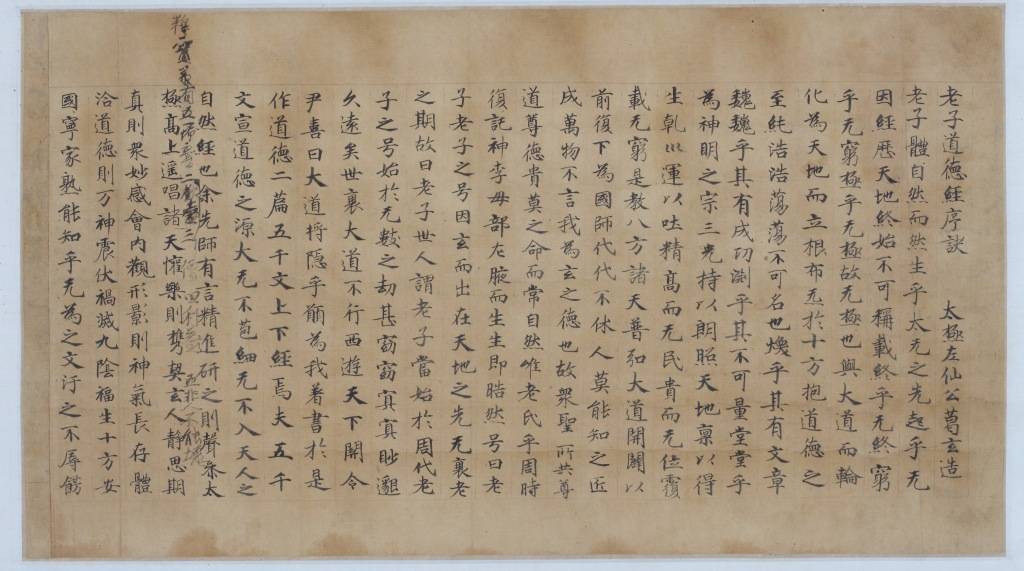 老子道德經序訣　太極左仙公葛玄造
老子體自然而然生乎太无之先起乎无
因經歷天地終始不可稱載終乎无終窮
乎无窮極乎无極故无極也與大道而輪
化為天地而立根布炁於十方抱道德之
至純浩浩蕩蕩不可名也煥乎其有文章
巍巍乎其有成功渊乎其不可量堂堂乎
為神明之宗三光持以朗照天地禀以得
生乹巛運以吐精高而无民貴而无位覆
載无窮是教八方諸天普弘大道開闢以
前復下為國師代代不休人莫能知之匠
成萬物不言我為玄之德也故衆聖所共尊
道尊德貴莫之命而常自然惟老氏乎周時
復託神李母部左腋而生生即晧然号曰老
子老子之号因玄而出在天地之先无衰老
之期故曰老子世人謂老子當始於周代老
子之号始於无數之劫甚窈窈冥冥眇邈
久遠矣世衰大道不行西遊天下開令
尹喜曰大道将隐乎願為我着書於是
作道德二篇五千文上下經焉夫五千
文宣道德之源大无不苞細无不入天人之
自然經也余先師有言精進研之則聲条太
極髙上遥唱諸天懽樂則携契玄人静思期
真則衆妙感會内觀形影則神氣長存體
洽道德則万神震伏禍滅九陰福生十方安
國寧家孰能知乎无為之文汙之不辱餝